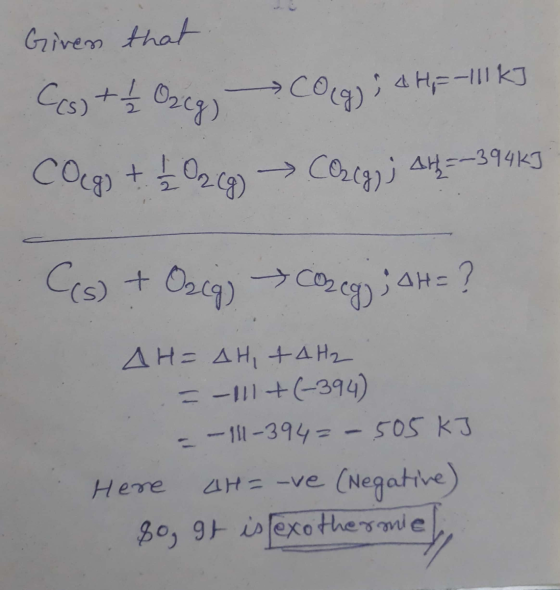 Given that
C(s) + 1/2 O2(g) → CO(g) ; ΔH1 = -111 KJ
CO(g) + 1/2 O2(g) → CO2(g) ; ΔH2 = -394 KJ
C(s) + O2(g) → CO2(g) ; ΔH = ?
ΔH = ΔH1 + ΔH2
= -111 + (-394)
= -111 - 394 = - 505 KJ
Here ΔH = -ve (Negative)
So, It is exothermic